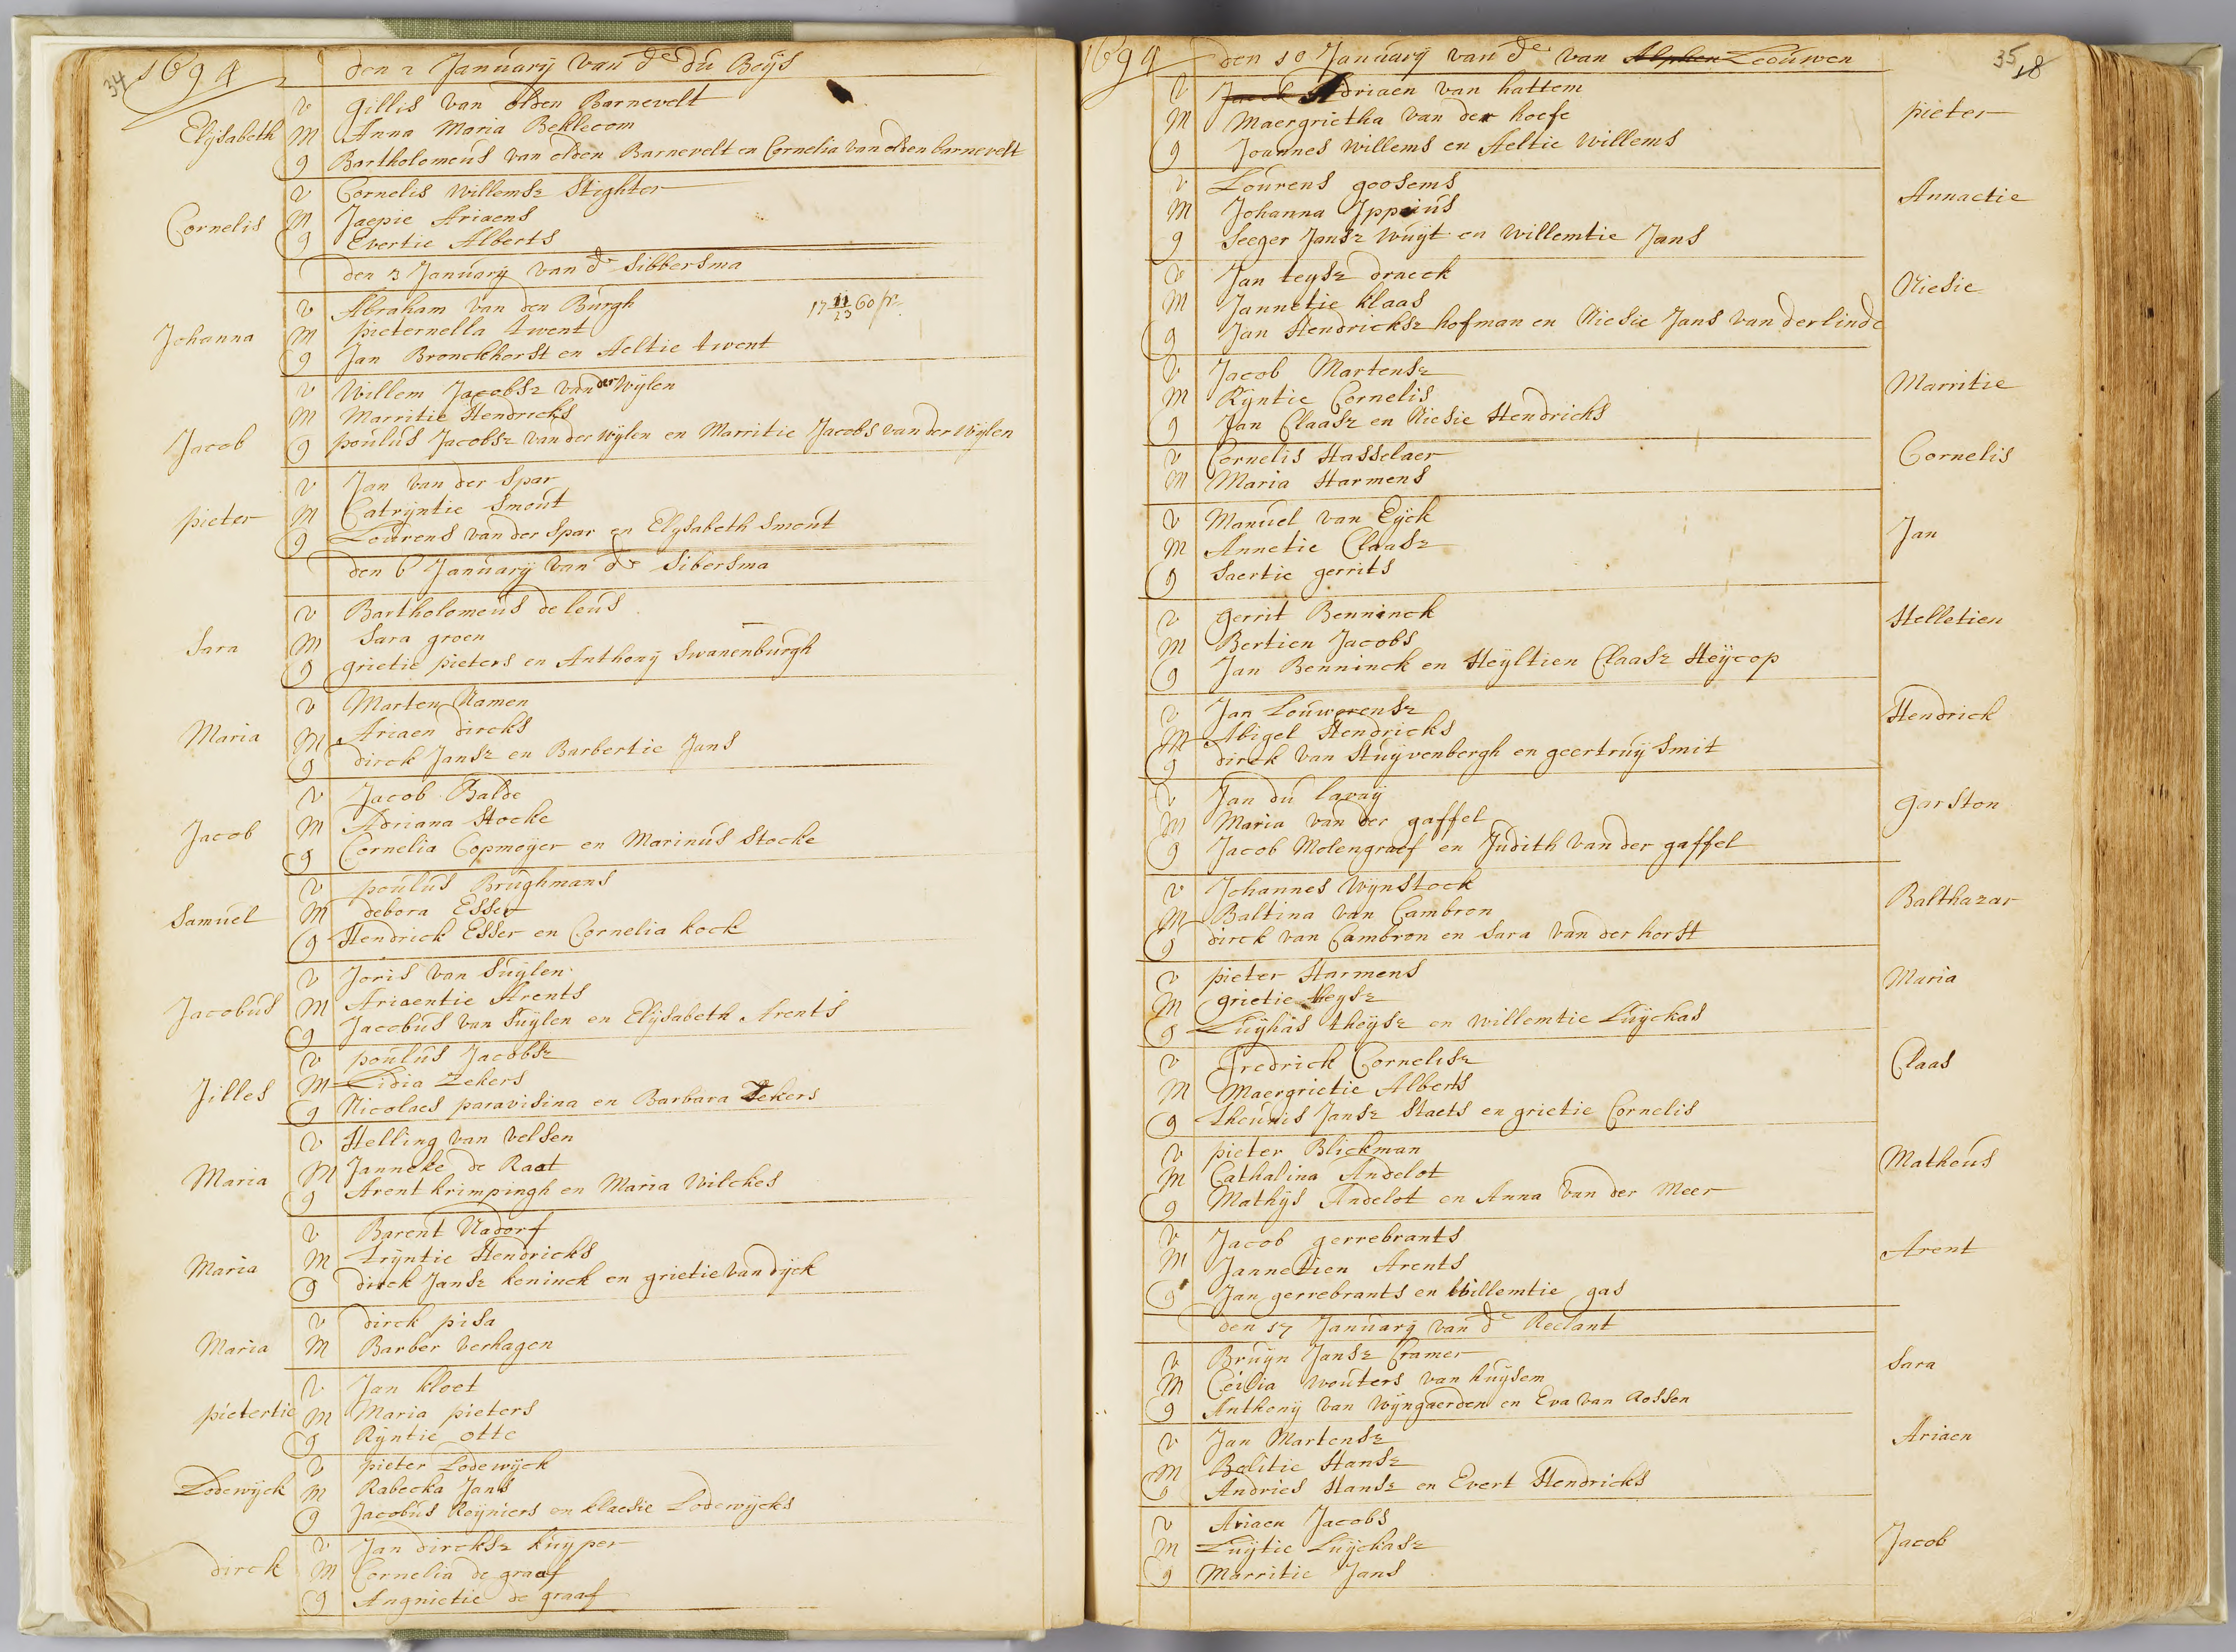 34
1694 den 2 January van de du Boijs
v Gillis van olden Barnevelt
Elijsabeth M Anna Maria Beklecom
g Bartholomeus van olden Barnevelt en Cornelia van olden barnevelt
v Cornelis Willemsz Stighter
Cornelis M Jaepie Ariaens
g Evertie Alberts
den 3 January van de Sibbersma
v Abraham van den Burgh
17 11/23 60 pr.
Johanna M pieternella twent
g Jan Bronckhorst en Aeltie twent
v Willem Jacobsz van der Wylen
M Marritie Hendricks
Jacob g poulus Jacobsz van der Wylen en Marritie Jacobs van der Wylen
v Jan van der Spar
pieter M Catryntie Smout
g Lourens van der Spar en Elysabeth Smout
den 6 January van de Sibersma
v Bartholomeus de leus
Sara M Sara groen
g grietie pieters en Anthony Swanenburgh
v Marten Namen
Maria M Ariaen dircks
g dirck Jansz en Barbertie Jans
v Jacob Balde
Jacob M Adriana Stocke
g Cornelia Copmoyer en Marinus Stocke
v poulus Brughmans
Samuel M debora Esser
g Hendrick Esser en Cornelia kock
v Joris van Suylen
Jacobus M Ariaentie Arents
g Jacobus van Suylen en Elijsabeth Arents
v poulus Jacobsz
Jilles M Lidia Zekers
g Nicolaes paravisina en Barbara Zekers
v Helling van velsen
Maria M Janneke de Raat
g Arent krimpingh en Maria Wilckes
v Barent Nadorf
Maria M Tryntie Hendricks
g dirck Jansz koninck en grietie van dyck
v dirck pisa
Maria M Barber verhagen
v Jan kloet
pietertie M Maria pieters
g Ryntie otte
v pieter Lodewyck
Lodewyck M Rabecka Jans
g Jacobus Reyniers en klaesie Lodewycks
v Jan dircksz kuyper
dirck M Cornelia de graaf
g Angnietie de graaf
35
18
1694 den 10 January van de van Alphen Leeuwen
v Jacob Adriaen van hattem
M Maergrietha van der hoefe pieter
g Joannes Willems en Aeltie Willems
v Lourens goosems
M Johanna Ippius Annactie
g Seeger Jansz Wuyt en Willemtie Jans
v Jan teysz draeck
M Jannetie klaas Niesie
g Jan Hendricksz hofman en Niesie Jans van der linde
v Jacob Martensz
M Ryntie Cornelis Marritie
g Jan Claasz en Niesie Hendricks
v Cornelis Hasselaer Cornelis
M Maria Harmens
v Manuel van Eyck
M Annetie Claasz Jan
g Saertie gerrits
v gerrit Benninck Helletien
M Bertien Jacobs
g Jan Benninck en Heyltien Claasz Heycop
v Jan Louwerensz Hendrick
M Abigel Hendricks
g dirck van Stuyvenbergh en geertruy Smit
v Jan du lavaij
M Maria van der gaffel garston
g Jacob Molengraef en Judith van der gaffel
v Johannes Wynstock
M Baltina van Cambron Balthazar
g dirck van Cambron en Sara van der horst
v pieter Harmens Maria
M grietie theysz
g Luykas theysz en Willemtie Luyckas
v Fredrick Cornelisz Claas
M Maergrietie Alberts
g theunis Jansz Staets en grietie Cornelis
v pieter Blickman
M Cathalina Andelot Matheus
g Mathys Andelot en Anna van der Meer
v Jacob gerrebrants
M Jannetien Arents Arent
g Jan gerrebrants en Willemtie gas
den 17 January van de Reclant
v Bruyn Jansz Cramer
M Cecilia Wouters van huysem Sara
g Anthony van Wyngaerden en Eva van Rossen
v Jan Martensz Ariaen
M Belitie Hansz
g Andries Hansz en Evert Hendricks
v Ariaen Jacobs
M Luytie Luyckasz Jacob
g Marritie Jans